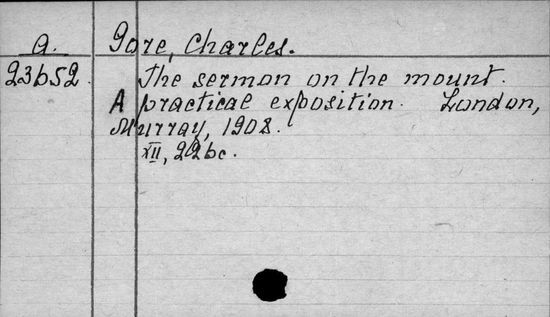 a. Gore, Charles.
23652. The sermon on the mount.
A practical exposition. London,
Murray, 1908.
XII, 226c.